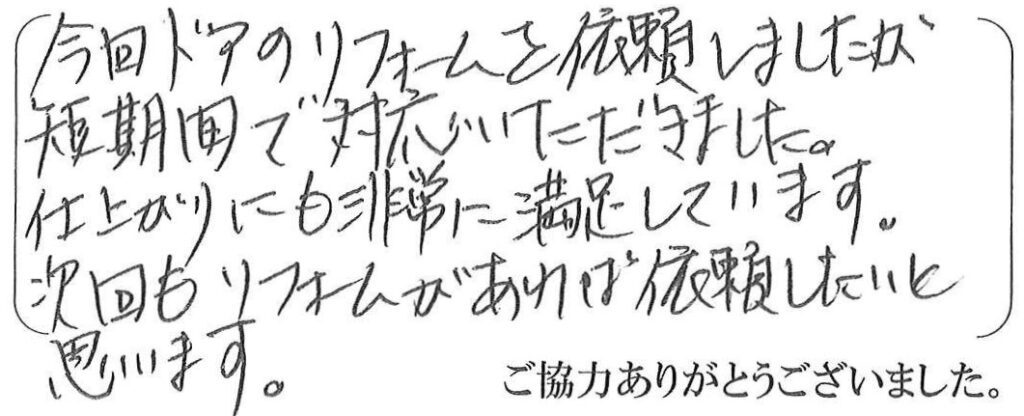 今回ドアのリフォームを依頼しましたが
短期間で対応いただきました。
仕上がりにも非常に満足しています。
次回もリフォームがあれば依頼したいと
思います。
ご協力ありがとうございました。